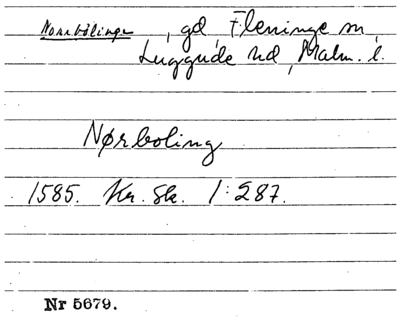 Norrbölinge, gd, Fleninge sn,
Luggude hd, Malm. l.
Nørboling
1585. Kr. Sk. 1:287.
Nr 5679.